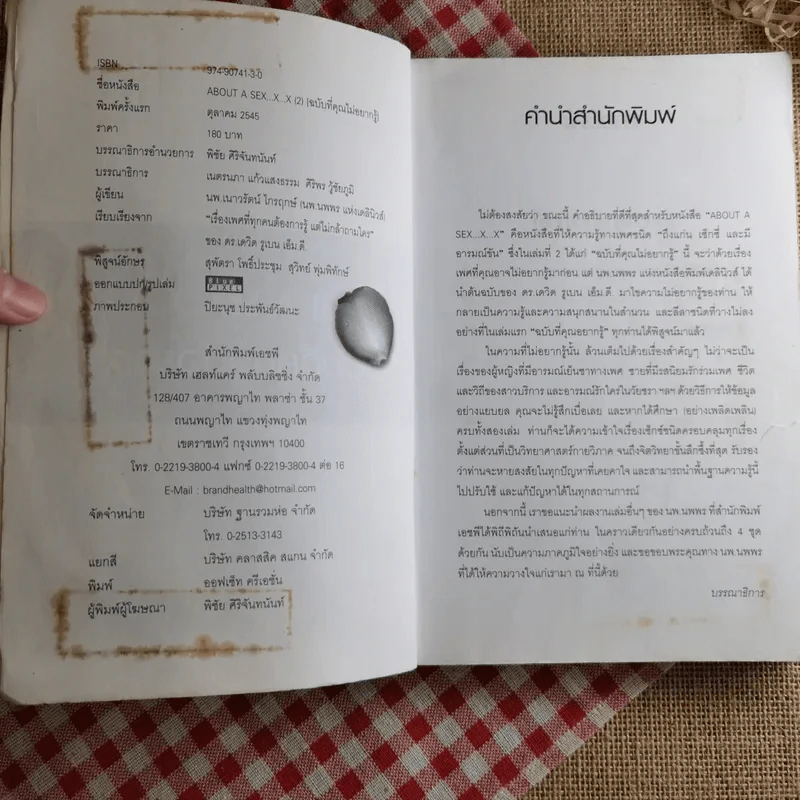 ISBN 974-90741-3-0
ชื่อหนังสือ ABOUT A SEX...X...X (2) (ฉบับที่คุณไม่อยากรู้)
พิมพ์ครั้งแรก ตุลาคม 2545
ราคา 180 บาท
บรรณาธิการอำนวยการ พิชัย ศิริจันทนันท์
บรรณาธิการ เนตรนภา แก้วแสงธรรม ศิริพร วุ้ชัยภูมิ
ผู้เขียน นพ.เนาวรัตน์ ไกรฤกษ์ (นพ.นพพร แห่งเดลินิวส์)
เรียบเรียงจาก "เรื่องเพศที่ทุกคนต้องการรู้ แต่ไม่กล้าถามใคร"
ของ ดร.เดวิด รูเบน เอ็ม.ดี.
พิสูจน์อักษร สุพัตรา โพธิ์ประชุม สุวิทย์ พุ่มพิทักษ์
ออกแบบปก/รูปเล่ม BLUE PIXEL
ภาพประกอบ ปิยะนุช ประพันธ์วัฒนะ
สำนักพิมพ์เอชพี
บริษัท เฮลท์แคร์ พลับบลิชชิ่ง จำกัด
128/407 อาคารพญาไท พลาซ่า ชั้น 37
ถนนพญาไท แขวงทุ่งพญาไท
เขตราชเทวี กรุงเทพฯ 10400
โทร. 0-2219-3800-4 แฟกซ์ 0-2219-3800-4 ต่อ 16
E-Mail : brandhealth@hotmail.com
จัดจำหน่าย บริษัท ฐานรวมห่อ จำกัด
โทร. 0-2513-3143
แยกสี บริษัท คลาสสิค สแกน จำกัด
พิมพ์ ออฟเซ็ท ครีเอชั่น
ผู้พิมพ์ผู้โฆษณา พิชัย ศิริจันทนันท์
คำนำสำนักพิมพ์
ไม่ต้องสงสัยว่า ขณะนี้ คำอธิบายที่ดีที่สุดสำหรับหนังสือ "ABOUT A
SEX...X...X" คือหนังสือที่ให้ความรู้ทางเพศชนิด "ถึงแก่น เซ็กซี่ และมี
อารมณ์ขัน" ซึ่งในเล่มที่ 2 ได้แก่ "ฉบับที่คุณไม่อยากรู้" นี้ จะว่าด้วยเรื่อง
เพศที่คุณอาจไม่อยากรู้มาก่อน แต่ นพ.นพพร แห่งหนังสือพิมพ์เดลินิวส์ ได้
นำต้นฉบับของ ดร.เดวิด รูเบน เอ็ม.ดี. มาไขความไม่อยากรู้ของท่าน ให้
กลายเป็นความรู้และความสนุกสนานในสำนวน และลีลาชนิดที่วางไม่ลง
อย่างที่ในเล่มแรก "ฉบับที่คุณอยากรู้" ทุกท่านได้พิสูจน์มาแล้ว
ในความที่ไม่อยากรู้นั้น ล้วนเติมไปด้วยเรื่องสำคัญๆ ไม่ว่าจะเป็น
เรื่องของผู้หญิงที่มีอารมณ์เย็นชาทางเพศ ชายที่มีรสนิยมรักร่วมเพศ ชีวิต
และวิถีของสาวบริการ และอารมณ์รักใคร่ในวัยชรา ฯลฯ ด้วยวิธีการให้ข้อมูล
อย่างแยบยล คุณจะไม่รู้สึกเบื่อเลย และหากได้ศึกษา (อย่างเพลิดเพลิน)
ครบทั้งสองเล่ม ท่านก็จะได้ความเข้าใจเรื่องเซ็กซ์ชนิดครอบคลุมทุกเรื่อง
ตั้งแต่ส่วนที่เป็นวิทยาศาสตร์กายวิภาค จนถึงจิตวิทยาชั้นลึกซึ้งที่สุด รับรอง
ว่าท่านจะหายสงสัยในทุกปัญหาที่เคยคาใจ และสามารถนำพื้นฐานความรู้นี้
ไปปรับใช้ และแก้ปัญหาได้ในทุกสถานการณ์
นอกจากนี้ เราขอแนะนำผลงานเล่มอื่นๆ ของ นพ.นพพร ที่สำนักพิมพ์
เอชพีได้พิถีพิถันนำเสนอแก่ท่าน ในคราวเดียวกันอย่างครบถ้วนถึง 4 ชุด
ด้วยกัน นับเป็นความภาคภูมิใจอย่างยิ่ง และขอขอบพระคุณทาง นพ.นพพร
ที่ได้ให้ความวางใจแก่เรามา ณ ที่นี้ด้วย
บรรณาธิการ